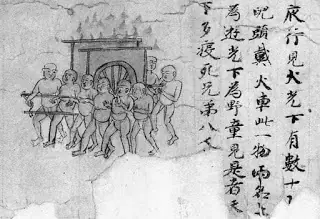 夜行見火光下有數十小
兒頭戴火車此一物兩名上
為遊光下為野童見是者天
下多疫死兄弟八人